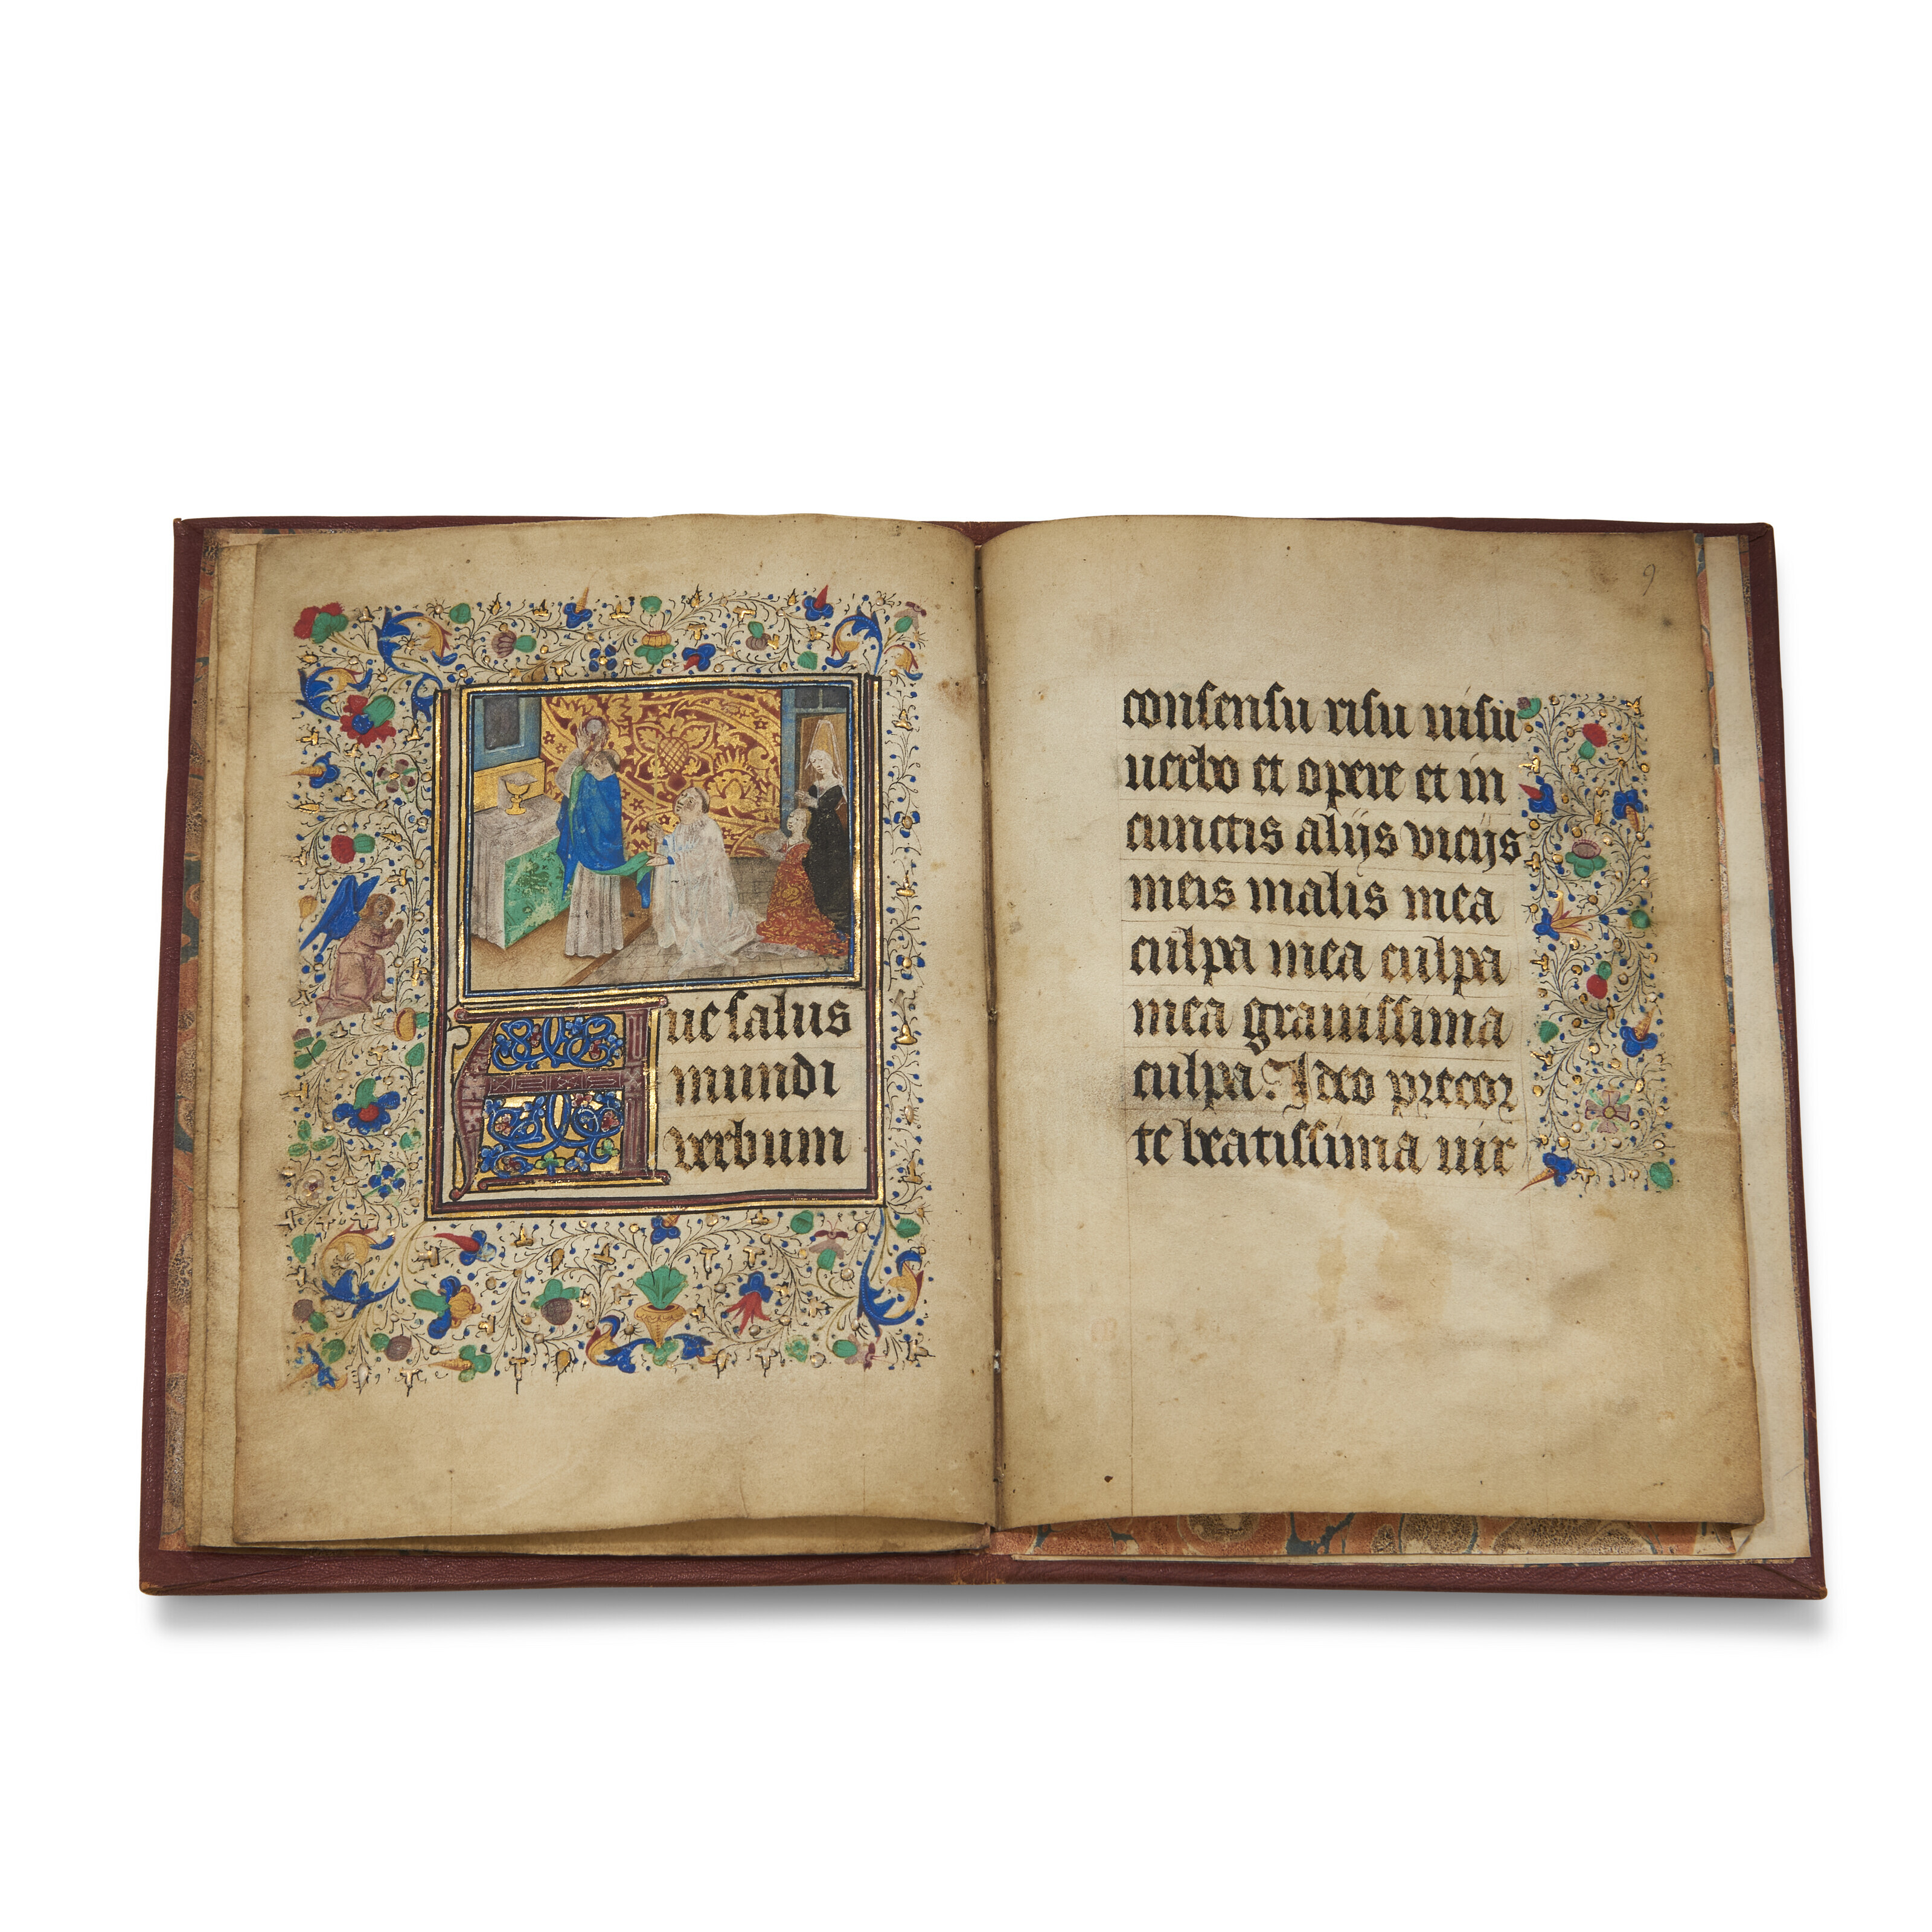 Aue salus
mundi
verbum
9
consensu risu uisu
uerbo et opere et in
cunctis alijs vicijs
meis malis mea
culpa mea culpa
mea grauissima
culpa. Ideo precor
te beatissima uir